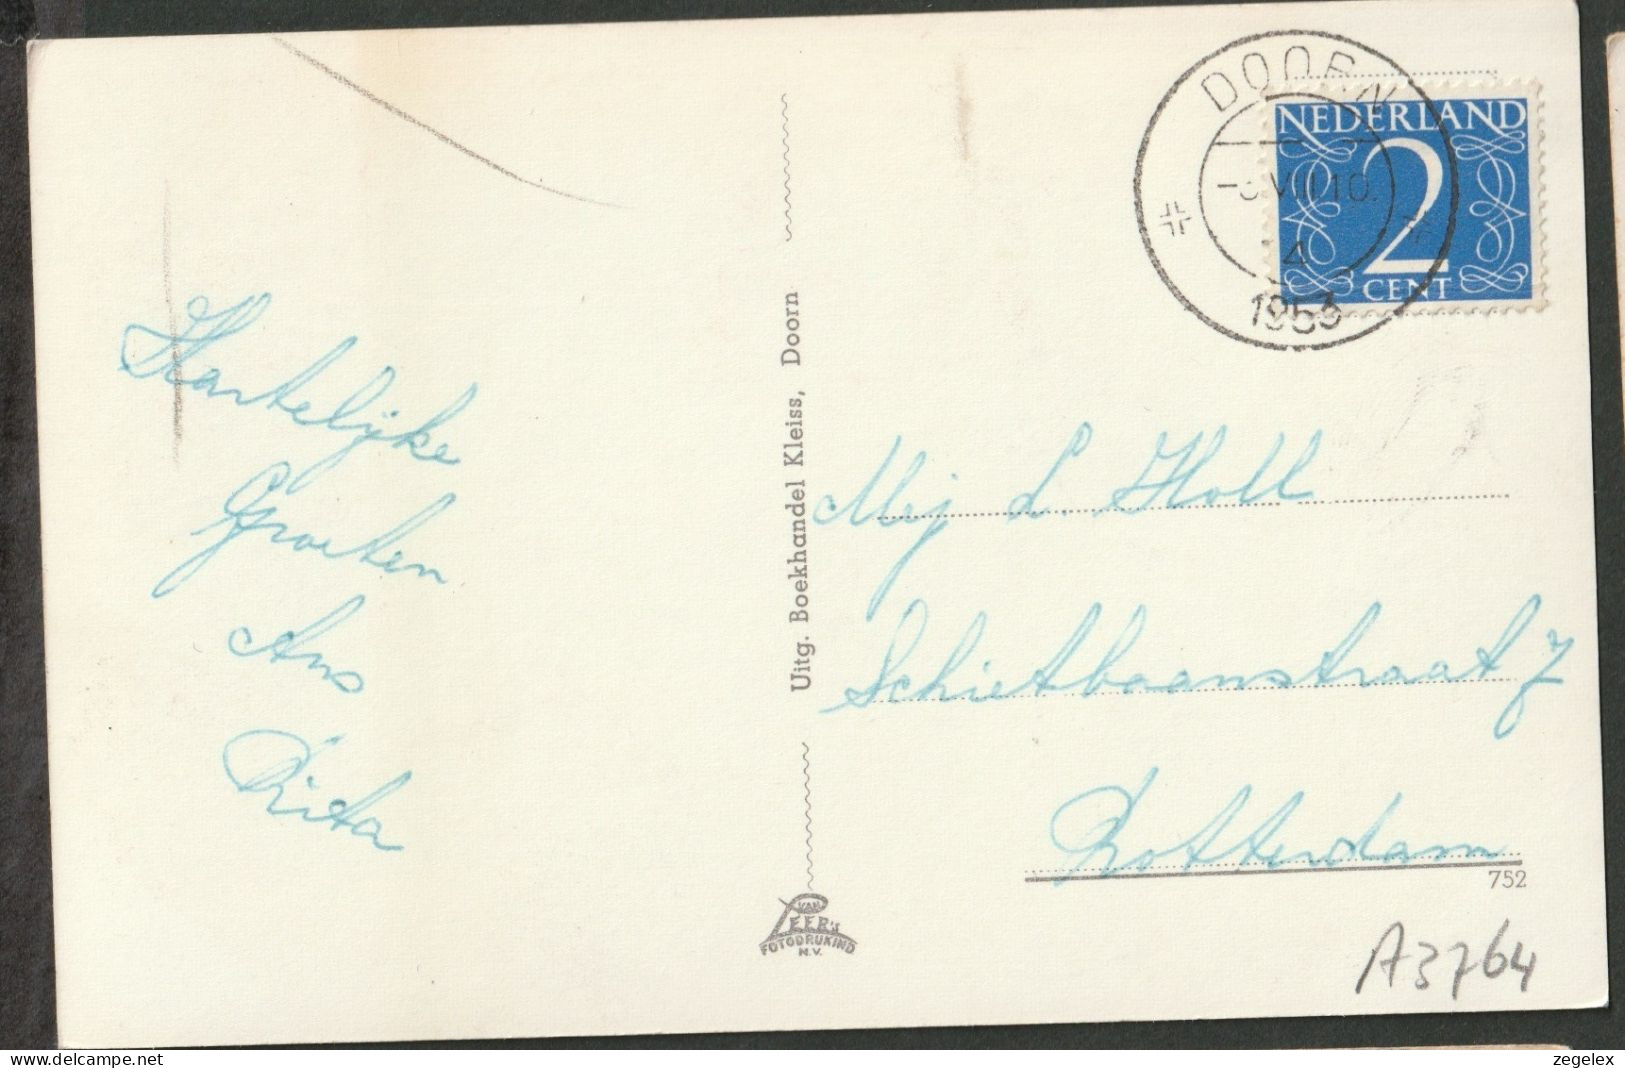 Hartelijke
Groeten
Ans
Rita
Uitg. Boekhandel Kleiss, Doorn
VAN
LEER'S
FOTODRUKIND
N.V.
DOORN
VIII 10.
4
1953
NEDERLAND
2
CENT
Mej L. Holl
Schietbaanstraat 7
Rotterdam
752
A3764
zegelex
delcampe.net